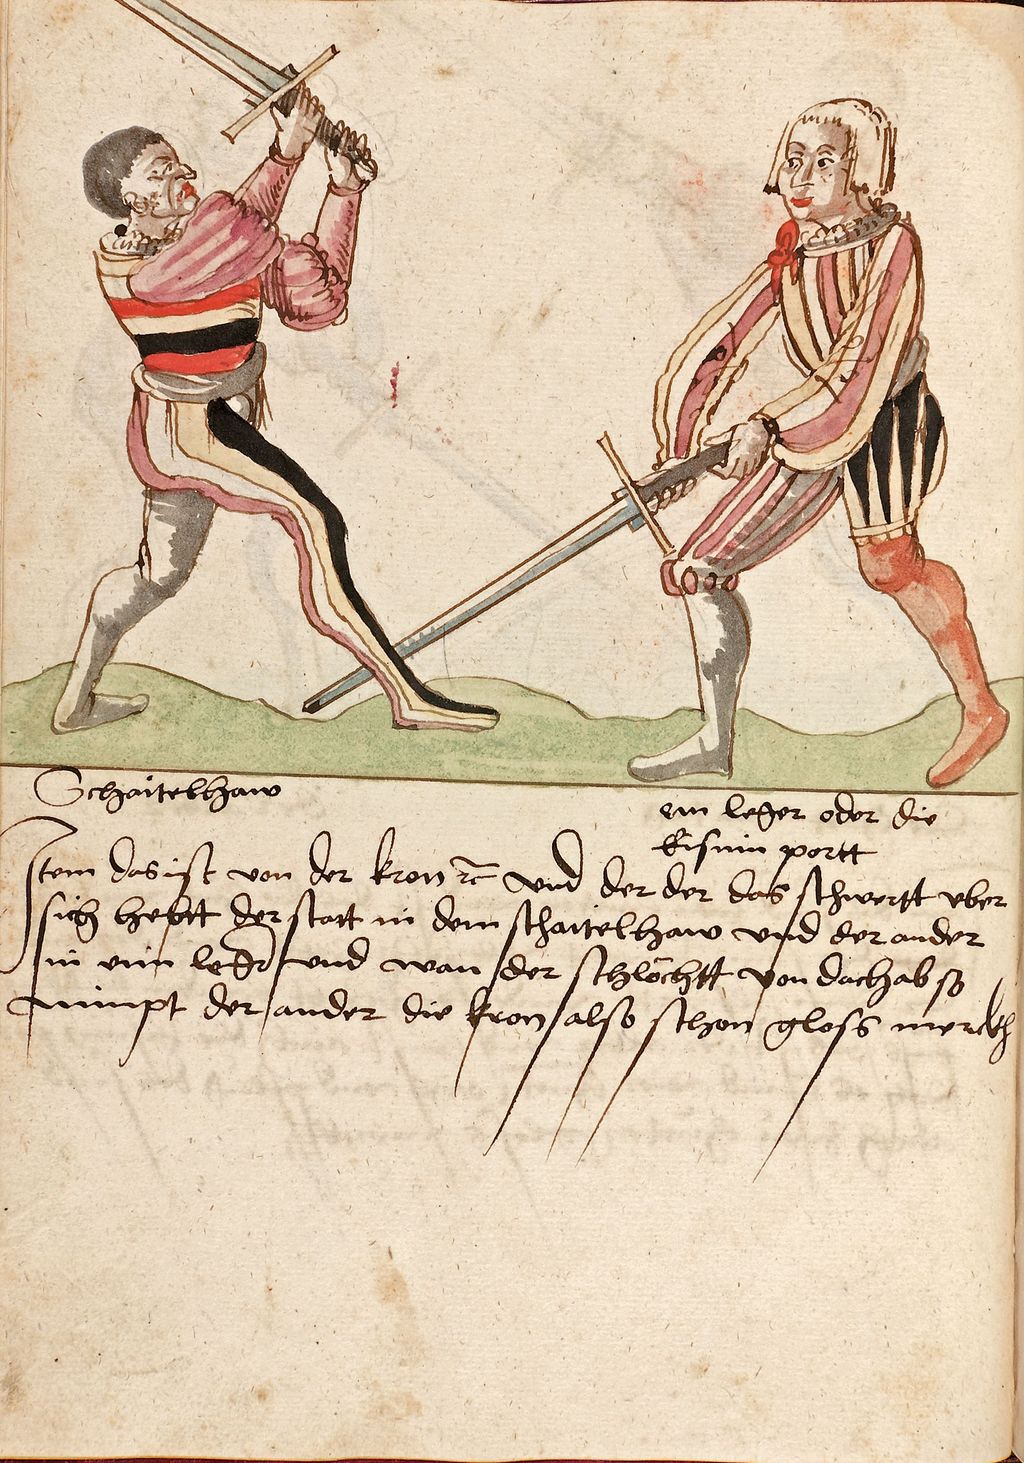 Schaitelhaw
ein leger oder die
Eisnin portt
Item das ist von der kron rc vnd der der das schwertt vber
sich hebtt der statt in dem schaitelhaw vnd der ander
in vnin leger vnd wan der schlöchtt von dach ab so
nimpt der ander die kron also schon gloss merckh